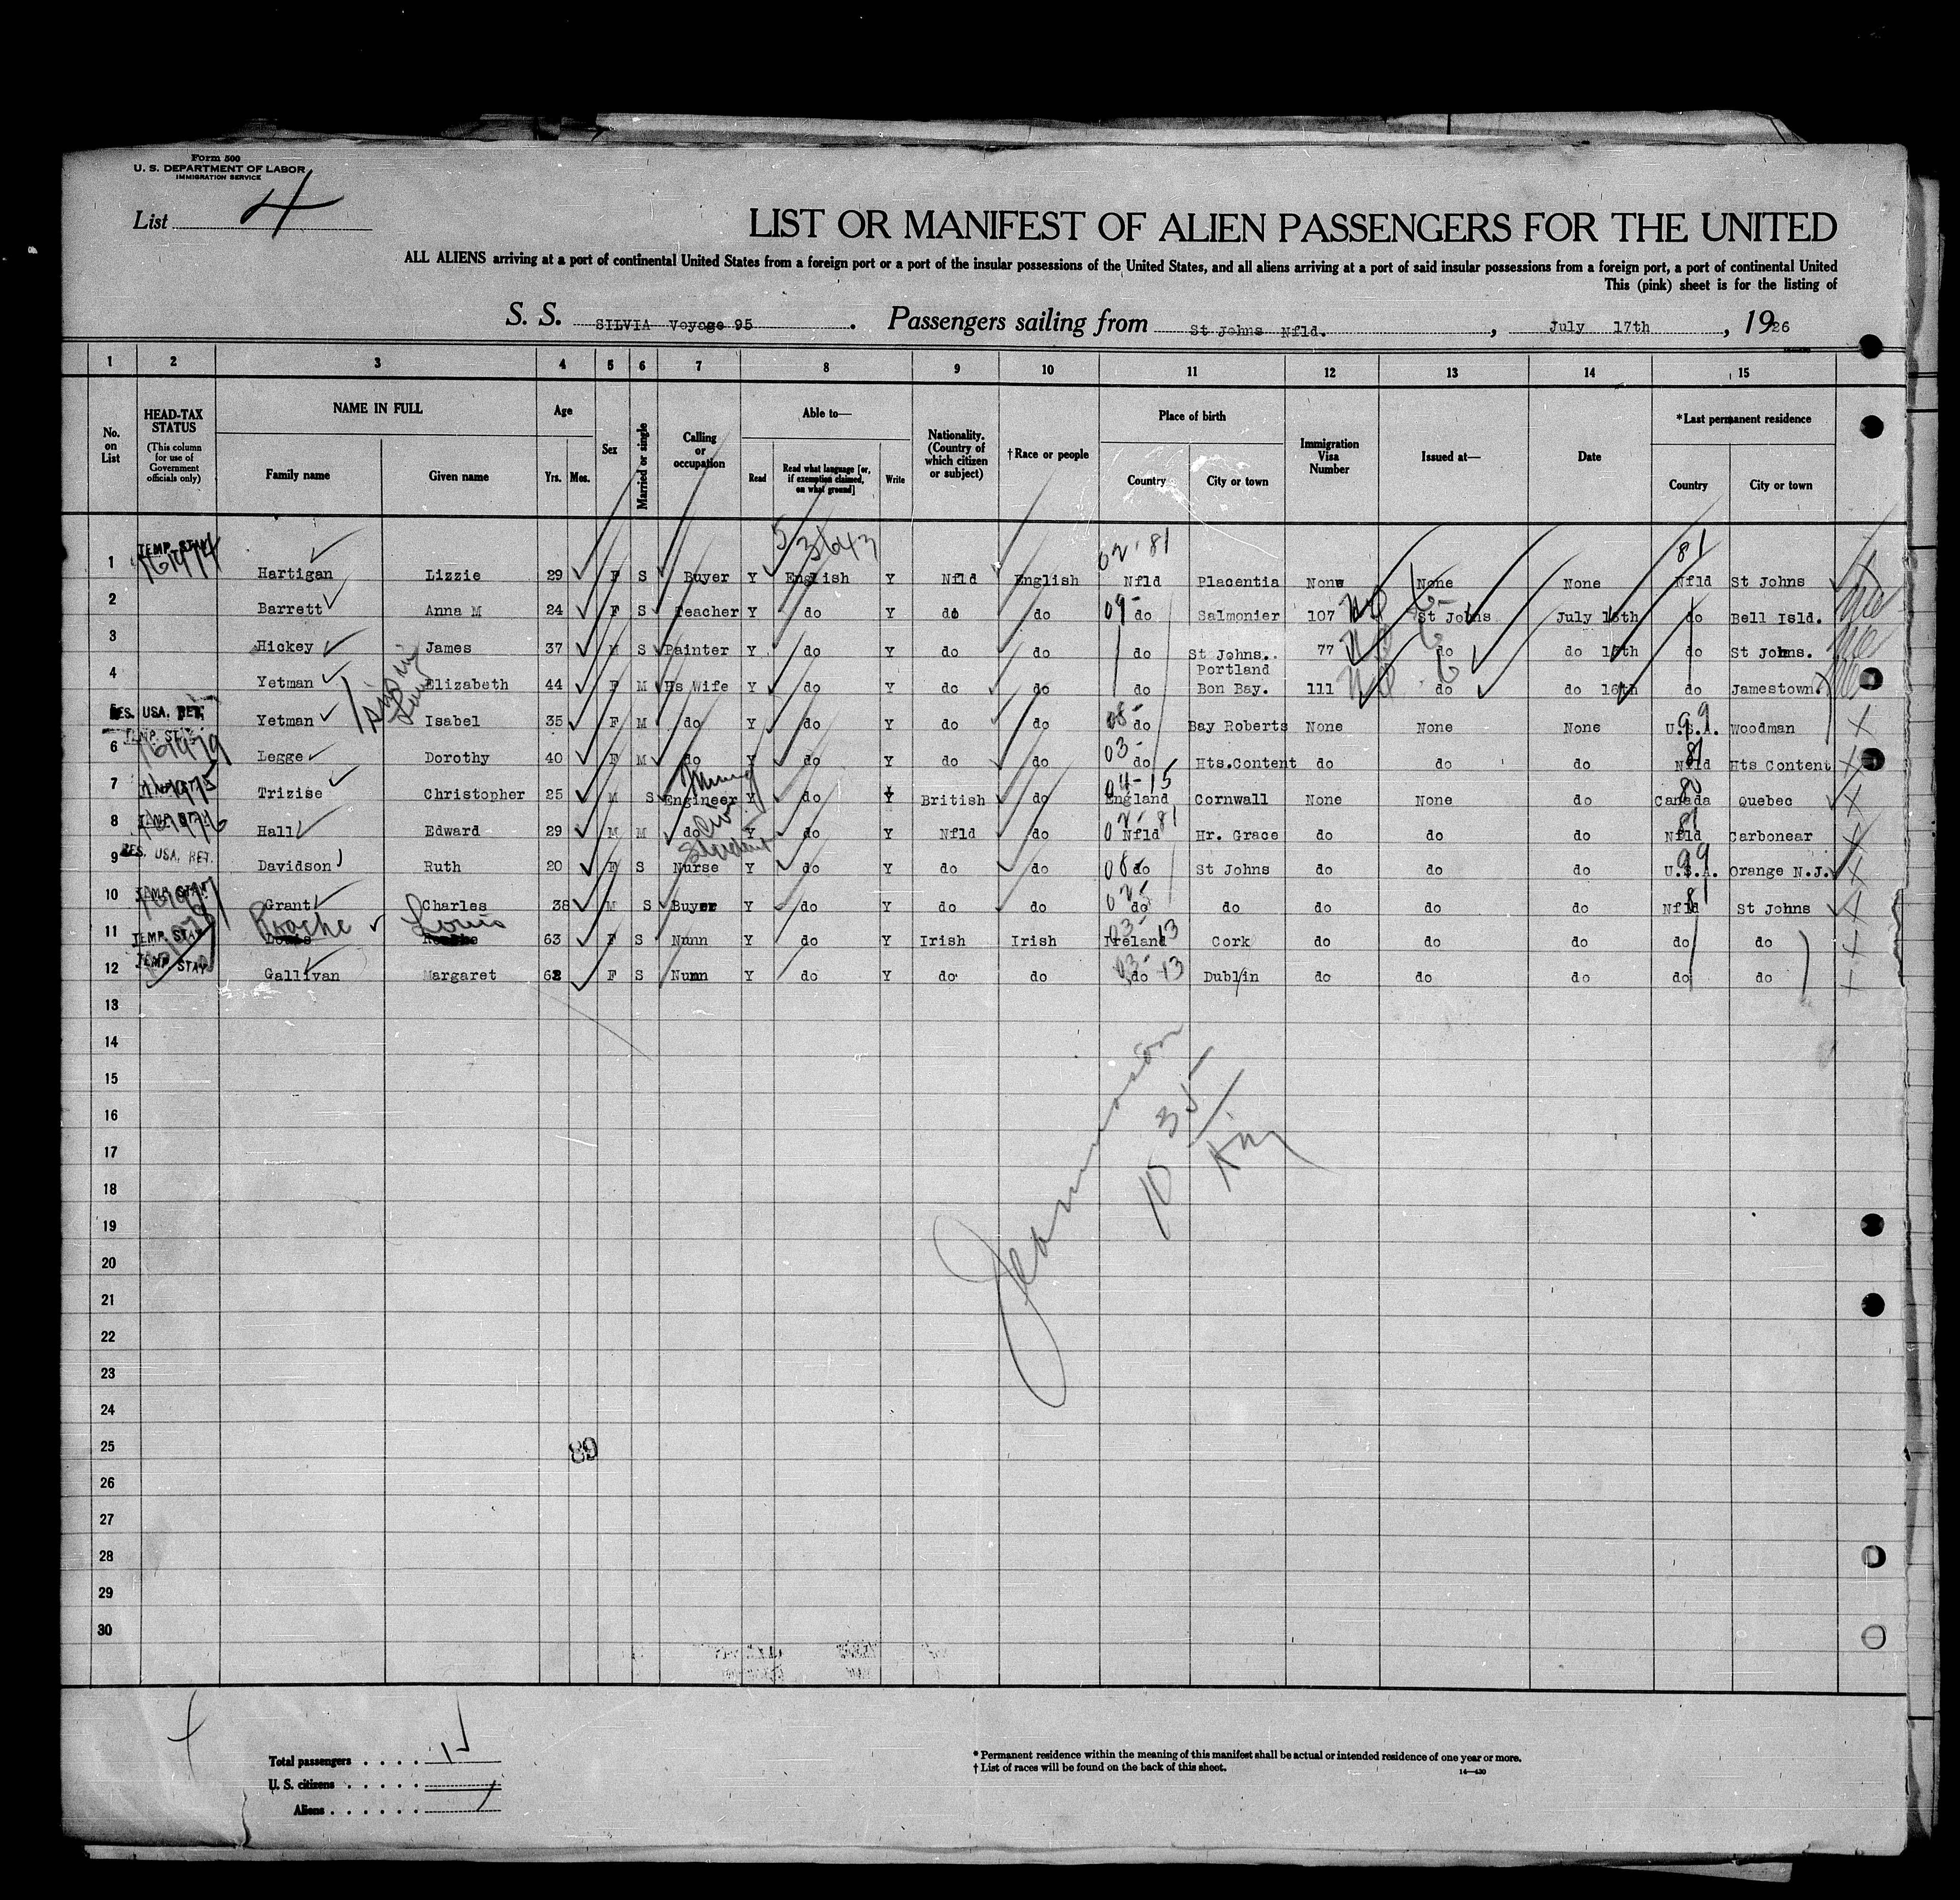 Form 500
U. S. DEPARTMENT OF LABOR
IMMIGRATION SERVICE
List 4
LIST OR MANIFEST OF ALIEN PASSENGERS FOR THE UNITED
ALL ALIENS arriving at a port of continental United States from a foreign port or a port of the insular possessions of the United States, and all aliens arriving at a port of said insular possessions from a foreign port, a port of continental United
This (pink) sheet is for the listing of
S. S. SILVIA Voyage 95. Passengers sailing from St Johns Nfld., July 17th, 1926
1 2 3 4 5 6 7 8 9 10 11 12 13 14 15
No. on List
HEAD-TAX STATUS (This column for use of Government officials only)
NAME IN FULL Family name Given name
Age Yrs. Mos.
Sex
Married or single
Calling or occupation
Able to— Read Read what language [or, if exemption claimed, on what ground] Write
Nationality. (Country of which citizen or subject)
†Race or people
Place of birth Country City or town
Immigration Visa Number
Issued at—
Date
*Last permanent residence Country City or town
53643 02 81 81
1 TEMP. STAY Hartigan Lizzie 29 F S Buyer Y English Y Nfld English Nfld Placentia None None None Nfld St Johns
2 Barrett Anna M 24 F S Teacher Y do Y do do 09- do Salmonier 107 St Johns July 15th do Bell Isld.
3 Hickey James 37 M S Painter Y do Y do do do St Johns. 77 do do 15th do St Johns.
4 Yetman Elizabeth 44 F M Hs Wife Y do Y do do do Portland Bon Bay. 111 do do 16th do Jamestown.
5 RES. USA. RET. Yetman Isabel 35 F M do Y do Y do do 08- do Bay Roberts None None None 99 U.S.A. Woodman
6 TEMP. STAY Legge Dorothy 40 F M do Y do Y do do 03- do Hts.Content do do do 81 Nfld Hts Content
7 Trizise Christopher 25 M S Mining Engineer Y do Y British do 04-15 England Cornwall None None do 80 Canada Quebec
8 TEMP. STAY Hall Edward 29 M M do Civ Y do Y Nfld do 02-81 Nfld Hr. Grace do do do 81 Nfld Carbonear
9 RES. USA. RET. Davidson Ruth 20 F S Student Nurse Y do Y do do 08 do St Johns do do do 99 U.S.A. Orange N.J.
10 TEMP. STAY Grant Charles 38 M S Buyer Y do Y do do 02- do do do do do 81 Nfld St Johns
11 TEMP. STAY Roache Louis 63 F S Nunn Y do Y Irish Irish 03-13 Ireland Cork do do do do do
12 TEMP STAY Gallivan Margaret 62 F S Nunn Y do Y do do 03-13 do Dublin do do do do do
13
14
15
16
17
18
19
20
21
22
23
24
25
26
27
28
29
30
10 35
Total passengers . . . . .
U. S. citizens . . . . .
Aliens . . . . . .
* Permanent residence within the meaning of this manifest shall be actual or intended residence of one year or more.
† List of races will be found on the back of this sheet.
14—430